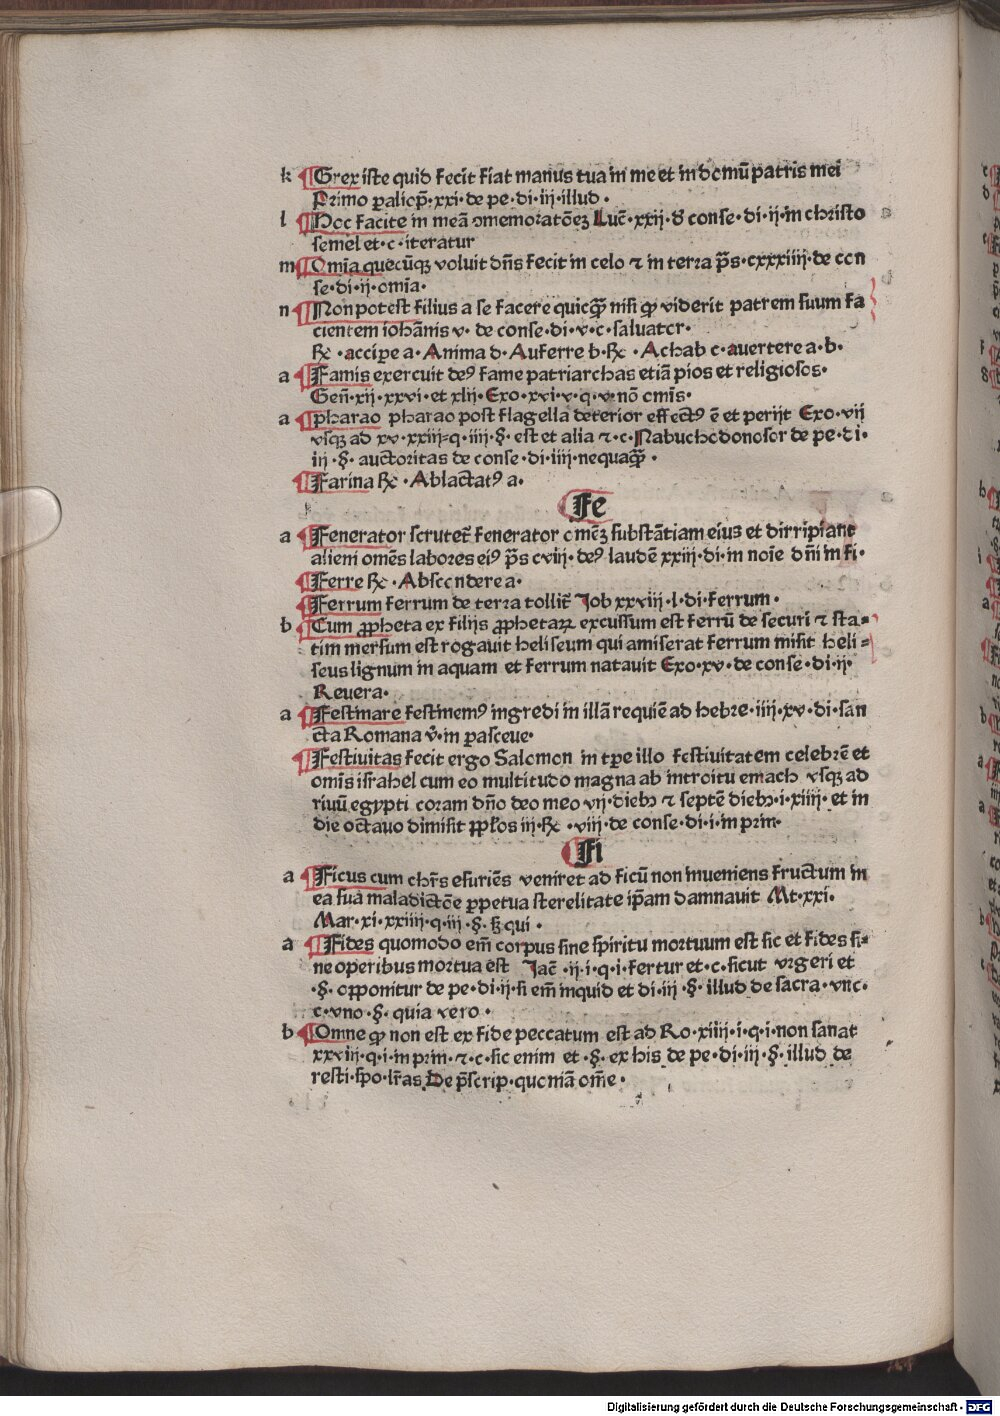 k Grex iste quid fecit fiat manus tua in me et in domū patris mei
Primo ꝑalip̄·xxi·de pe·di·iij·illud·
l Hoc facite in meā ꝯmemoratōeꝫ Luē·xxij·đ conse·di·ij·in christo
semel et·c·iteratur
m Om̄ia quecūqꝫ voluit dn̄s fecit in celo ⁊ in terra p̄s·cxxxiiij·de con
se·di·ij·omīa·
n Non potest filius a se facere quicq̄ꝫ nisi ꝙ viderit patrem suum fa
cientem iohānis v· de conse·di·v·c·saluator·
Rꝫ·accipe a·Anima d·Auferre b·Rꝫ·Achab c·auertere a·b·
a Famis exercuit deꝰ fame patriarchas etiā pios et religiosos·
Gen̄·xij·xxvi·et xlij·Exo·xvi·v·q·v·nō om̄is·
a pharao pharao post flagella deterior effectꝰ ē et perijt Exo·vij
vsqꝫ ad xv·xxiij·q·iiij·§·est et alia ⁊·c·Nabuchodonosor de pe·di·
iij·§·auctoritas de conse·di·iiij·nequaq̄ꝫ·
Farina Rꝫ·Ablactatꝰ a·
Fe
a Fenerator scrutet᷑ fenerator om̄eꝫ substātiam eius et dirripiant
alieni omēs labores eiꝰ p̄s cviij·deꝰ laudē xxiij·di·in noīe dn̄i in fi·
Ferre Rꝫ·Abscondere a·
Ferrum ferrum de terra tollit᷑ Job xxviij·l·di·ferrum·
b Cum ꝓpheta ex filijs ꝓphetaꝝ excussum est ferrū de securi ⁊ sta-
tim mersum est rogauit heliseum qui amiserat ferrum misit heli-
seus lignum in aquam et ferrum natauit Exo·xv·de conse·di·ij·
Reuera·
a Festinare festinemꝰ ingredi in illā requiē ad hebre·iiij·xv·di·san
cta Romana v̊·in pasceue·
Festiuitas fecit ergo Salomon in tꝑe illo festiuitatem celebrē et
om̄is israhel cum eo multitudo magna ab introitu emach vsqꝫ ad
riuū egypti coram dn̄o deo meo vij·diebꝫ ⁊ septē diebꝫ·i·xiiij·et in
die octauo dimisit pp̄łos iij·Rꝫ·viij·de conse·di·i·in prin·
Fi
a Ficus cum chr̄s esuriēs veniret ad ficū non inueniens fructum in
ea suā maladictōe ꝑpetua sterelitate ip̄am damnauit Mt·xxi·
Mar·xi·xxiiij·q·iij·§·sꝫ qui·
a Fides quomodo em̄ corpus sine spiritu mortuum est sic et fides si-
ne operibus mortua est Jac̄·ij·i·q·i·fertur et·c·sicut vrgeri et
·§·opponitur de pe·di·ij·si em̄ inquid et di·iij·§·illud de sacra·vnc·
c·vno·§·quia vero·
b Omne ꝙ non est ex fide peccatum est ad Ro·xiiij·i·q·i·non sanat
xxviij·q·i·in prin·⁊·c·sic enim et·§·ex his de pe·di·iij·§·illud de
resti·spo·lr̄as De p̄scrip·quoniā om̄e·
Digitalisierung gefördert durch die Deutsche Forschungsgemeinschaft - DFG